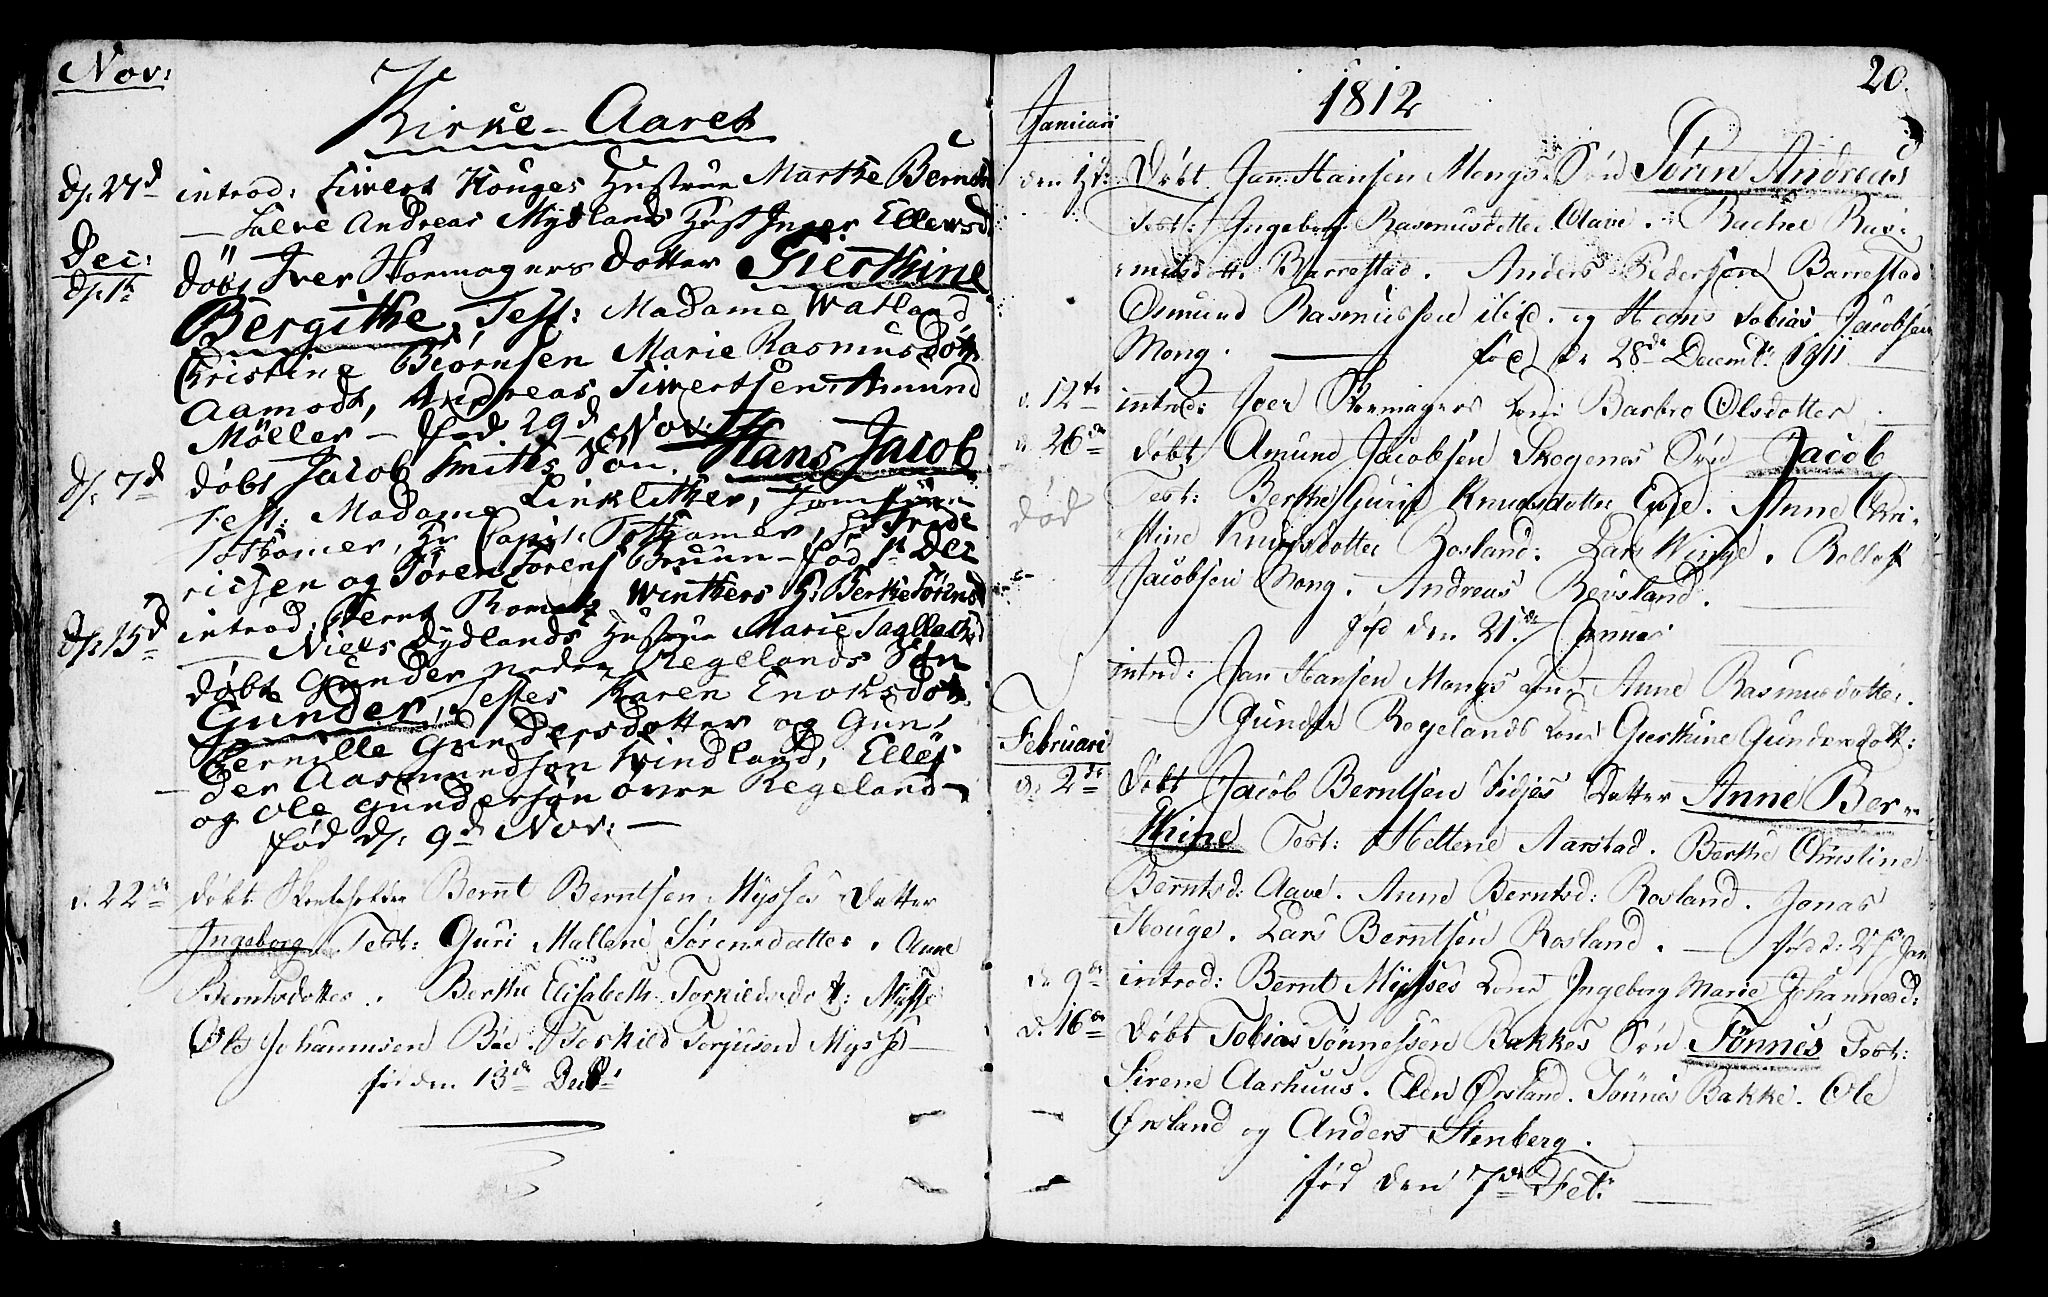 Nov:
Kirke-Aaret
d/: 27d introd: Sivert Houges Hustrue Marthe Berntsd
— Salve Andreas Mydlands Hust Inger Ellevsd
Dec:
d/: 1te døbt Iver Skomagers Dotter Gierthine
Bergithe, Test: Madame Watland
Kristine Biørnsen Marie Rasmusdott.
Aamodt, Andreas Sivertsen Amund
Møller — fød 29d Nov:
d/: 7d døbt Jacob Smiths Søn Hans Jacob
Test: Madame Linkletther, Jomfrue
Totthamer, Hr Capit: Totthamer,
richsen og Søren Sørens Bruun — fød 1t Dec
introd: Bernt Winthers H: Berthe Sørensd
d/: 15d — Niels Dydlands Hustrue Marie
døbt Gunder nedre Regelands Søn
Gunder, Testes Karen Enoksdot.
Pernille Gundersdotter og Gun,
der Aasmundsøn Windland, Ellef
og Ole Gundersøn øvre Regeland —
fød d/: 9d Nov: —
d. 22de døbt Bernt Berntsen Mysses Datter
Ingeborg Test: Guri Mallene Sørensdatter. Anne
Berntsdotter. Berthe Elisabeth Torkildsdot: Mysse
Ole Johannsen Bøe. Torkild Torjusen Mysse —
fød den 13de Decbr
20.
1812
Januari
den 1ste: Døbt Jan Hansen Mongs Søn Søren Andreas
Test: Ingeborg Rasmusdotter Aave. Rachel Ras:
musdott. Barrestad. Anders Pedersen Barrestad
Osmund Rasmussen ibid. og Hans Tobias Jacobsen
Mong. — fød de 28de Decembr 1811
d. 12te introd: Iver Skomagers Kone Barbro Olsdotter
d. 26de døbt Amund Jacobsen Skogenes Søn Jacob
Test: Berthe Guri Knudsdotter Eide. Anne Chri-
død
stine Knudsdotter Rosland. Lars Winge. Rollof
Jacobsen Mong. Andreas Revsland.
fød den 21de Januar
introd: Jan Hansen Mongs Kone Anne Rasmusdotter.
— Gunder Regelands Kone Gierthine Gundersdott:
Februari
d. 2de Døbt Jacob Berntsen Eidjes Datter Anne Ber-
thine Test: Hellene Aarstad. Berthe Christine
Berntsd: Aave. Anne Berntsd: Rosland. Jonas
Houge. Lars Berntsen Rosland. — fød d: 27de Jan
d 9de introd: Bernt Mysses Kone Ingeborg Marie Johannesd:
d. 16de Døbt Tobias Tønnessen Bakkes Søn Tønnes Test:
Sirene Aarhuus. Elen Ørsland. Tønnes Bakke. Ole
Ørsland og Anders Stenberg.
fød den 7de Feb: